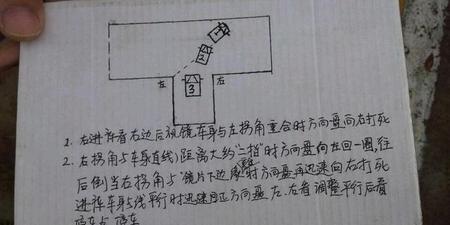 1
2
3
左
右
1. 右进库看右边后视镜车身与左拐角重合时方向盘向右打死
2. 右拐角与车身(直线)距离大约"二拾"时方向盘向左回一圈,往
后倒当右拐角与"镜片下边"时方向盘再迅速向右打死
进库车身与线平行时迅速回正方向盘左、右看调整平行后看